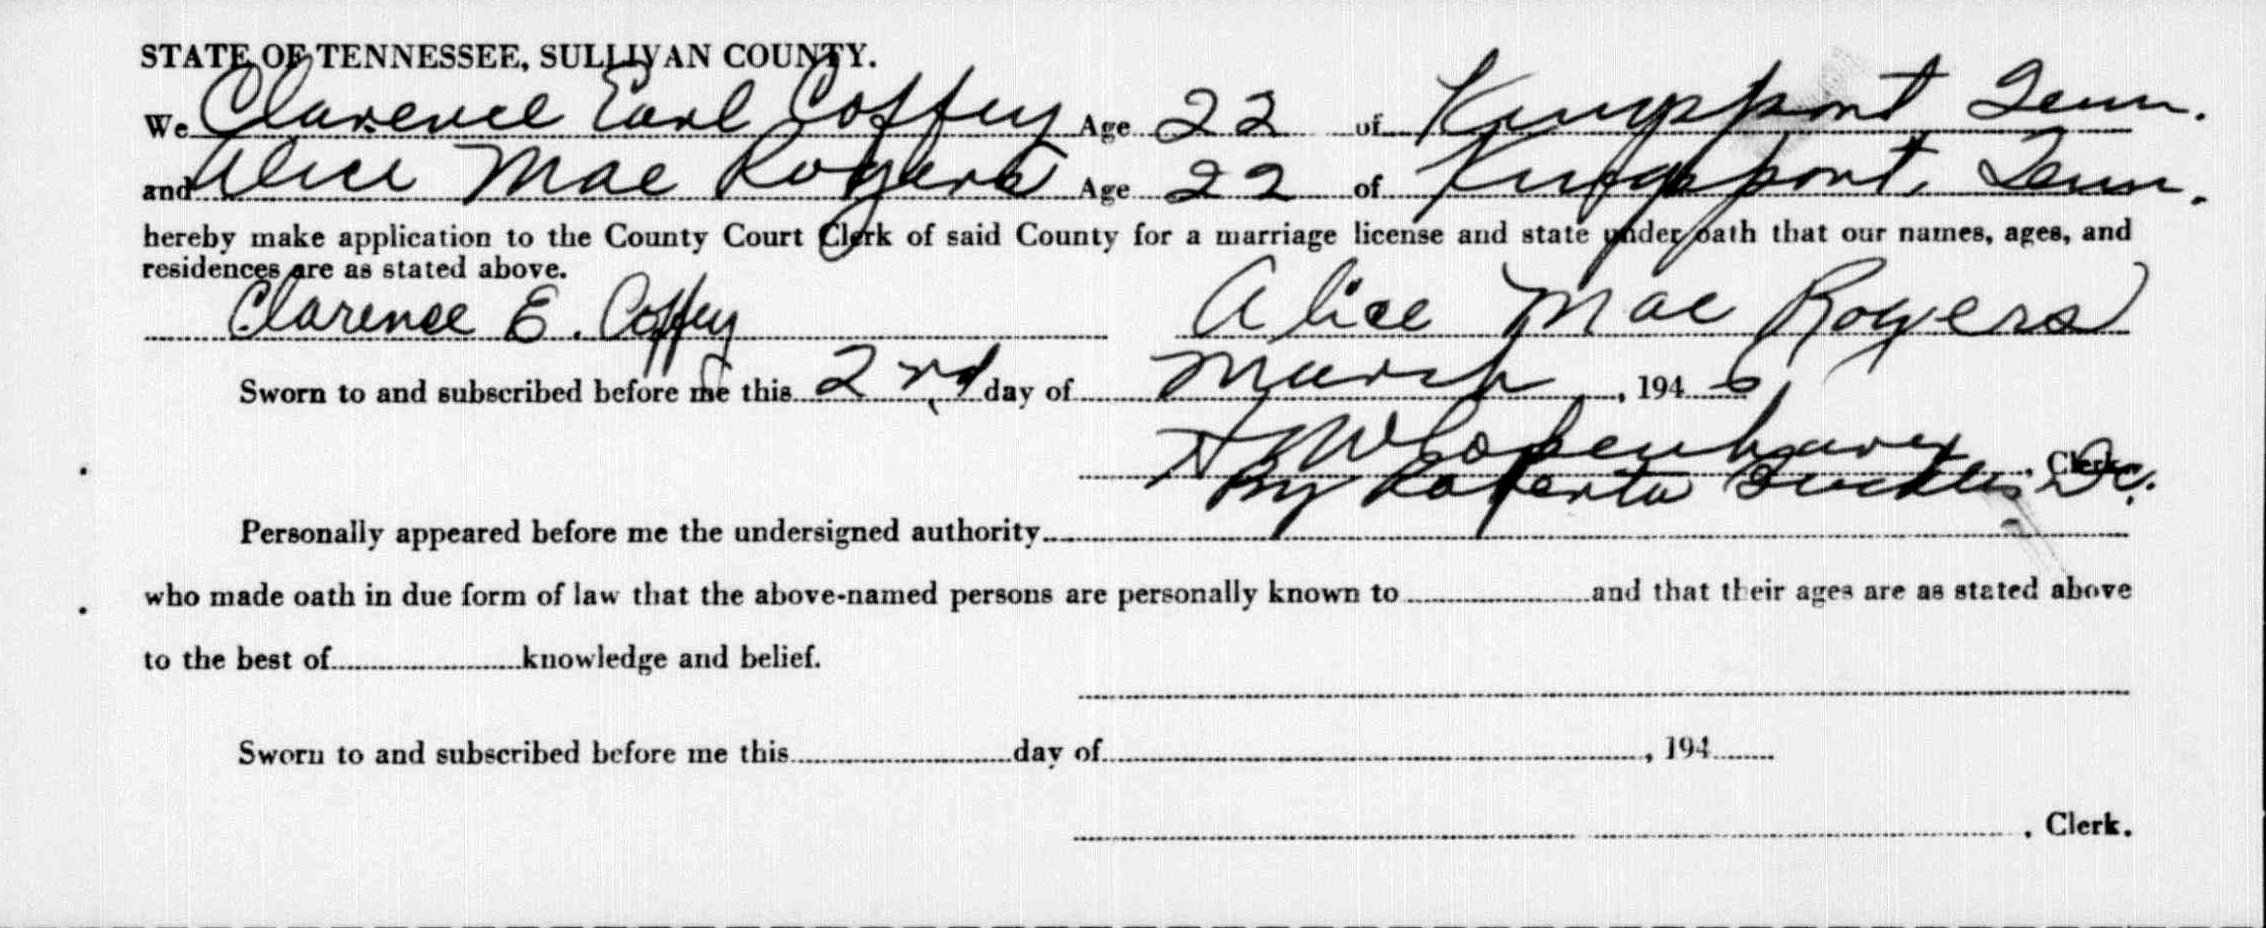 STATE OF TENNESSEE, SULLIVAN COUNTY.
We Clarence Earl Coffey Age 22 of Kingsport Tenn.
and Alice Mae Rogers Age 22 of Kingsport, Tenn.
hereby make application to the County Court Clerk of said County for a marriage license and state under oath that our names, ages, and
residences are as stated above.
Clarence E. Coffey Alice Mae Rogers
Sworn to and subscribed before me this 2nd day of March, 1946
By Roberta D.C.
Personally appeared before me the undersigned authority
who made oath in due form of law that the above-named persons are personally known to and that their ages are as stated above
to the best of knowledge and belief.
Sworn to and subscribed before me this day of , 194
, Clerk.